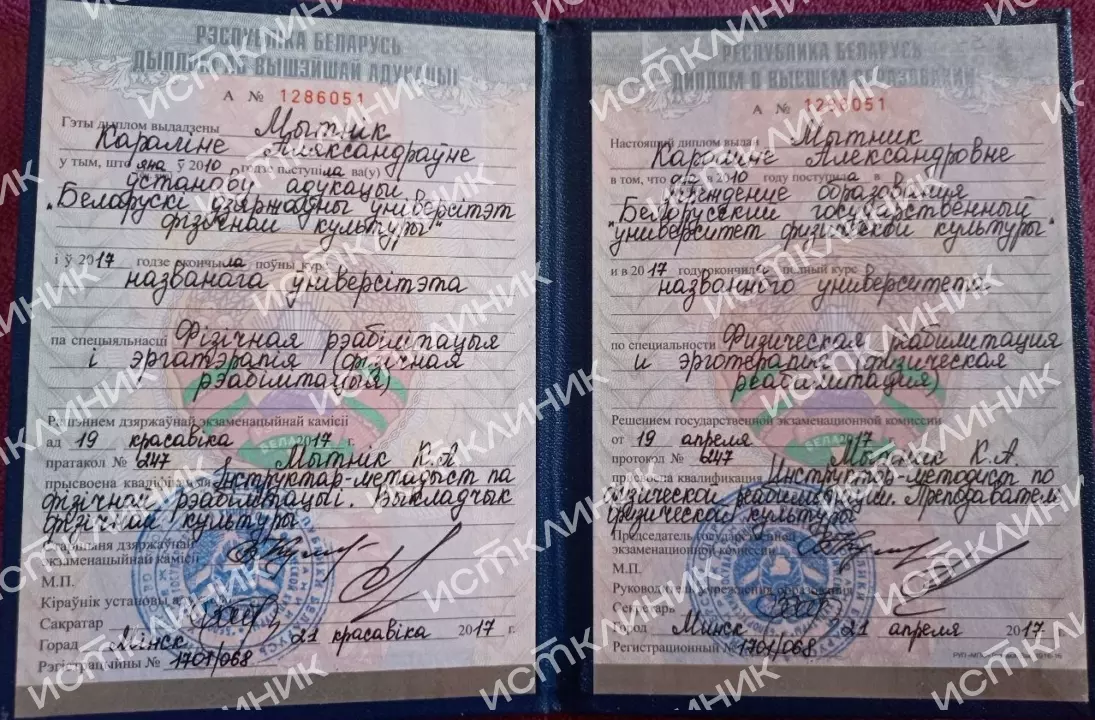 РЭСПУБЛІКА БЕЛАРУСЬ
ДЫПЛОМ АБ ВЫШЭЙШАЙ АДУКАЦЫІ
А № 1286051
Гэты дыплом выдадзены Мытнік
Караліне Аляксандраўне
у тым, што яна ў 2010 годзе паступіла ва(у)
ўстанову адукацыі
"Беларускі дзяржаўны ўніверсітэт
фізічнай культуры"
і ў 2017 годзе скончыла поўны курс
названага ўніверсітэта
па спецыяльнасці Фізічная рэабілітацыя
і эрготэрапія (фізічная
рэабілітацыя)
Рашэннем дзяржаўнай экзаменацыйнай камісіі
ад 19 красавіка 2017 г.
пратакол № 247 Мытнік К.А.
прысвоена кваліфікацыя Інструктар-метадыст па
фізічнай рэабілітацыі. Выкладчык
фізічнай культуры
Старшыня дзяржаўнай
экзаменацыйнай камісіі
М.П.
Кіраўнік установы
Сакратар
Горад Мінск 21 красавіка 2017 г.
Рэгістрацыйны № 1701/068
РЕСПУБЛИКА БЕЛАРУСЬ
ДИПЛОМ О ВЫСШЕМ ОБРАЗОВАНИИ
А № 1286051
Настоящий диплом выдан Мытник
Каролине Александровне
в том, что она в 2010 году поступила в
учреждение образования
"Белорусский государственный
университет физической культуры"
и в 2017 году окончила полный курс
названного университета
по специальности Физическая реабилитация
и эрготерапия (физическая
реабилитация)
Решением государственной экзаменационной комиссии
от 19 апреля 2017
протокол № 247 Мытник К.А.
присвоена квалификация Инструктор-методист по
физической реабилитации. Преподаватель
физической культуры
Председатель государственной
экзаменационной комиссии
М.П.
Руководитель учреждения образования
Секретарь
Город Минск 21 апреля 2017 г.
Регистрационный № 1701/068
ИСТКЛИНИК